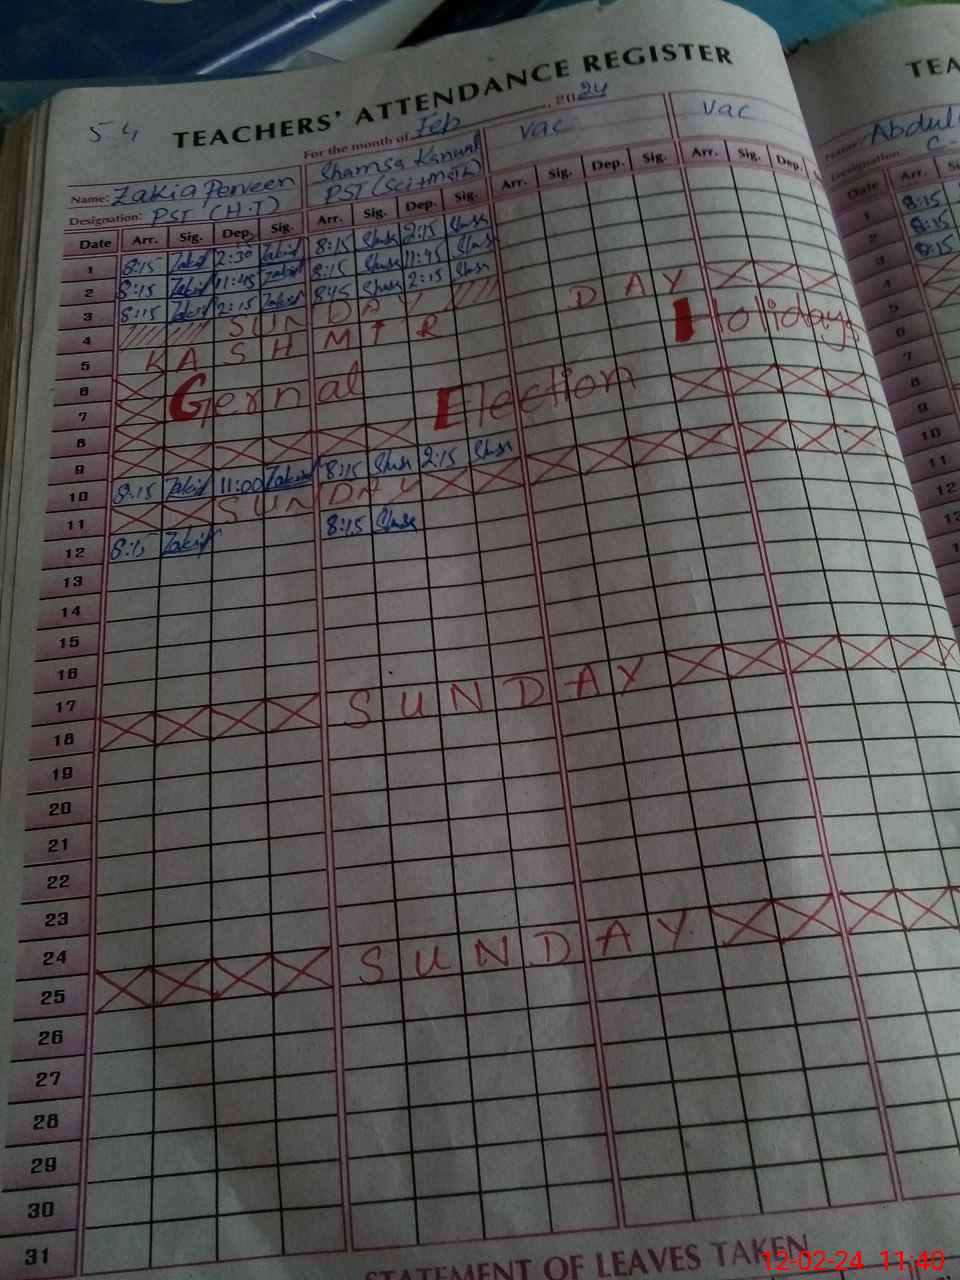 5 4
TEACHERS' ATTENDANCE REGISTER
For the month of Feb, 2024
Name: Zakia Perveen Shamsa Kanwal vac vac
Designation: PST (H.T) PST (Sci+math)
Date Arr. Sig. Dep. Sig. Arr. Sig. Dep. Sig. Arr. Sig. Dep. Sig. Arr. Sig. Dep.
1 8:15 Zakia 2:30 Zakia 8:15 2:15
2 8:15 Zakia 11:45 Zakia 8:15 11:45
3 8:15 Zakia 2:15 Zakia 845 2:15
4 SUNDAY
5 KASHMIR DAY
6
7 Gernal Election Holidays
8
9
10 8:15 Zakia 11:00 Zakia 8:15 2:15
11 SUNDAY
12 Zakia 8:15
13
14
15
16
17
18 SUNDAY
19
20
21
22
23
24
25 SUNDAY
26
27
28
29
30
31
STATEMENT OF LEAVES TAKEN
TEA
Name: Abdul
Designation: C-
Date Arr.
1 8:15
2 8:15
3 8:15
4
5
6
7
8
9
10
11
12
12-02-24 11:40